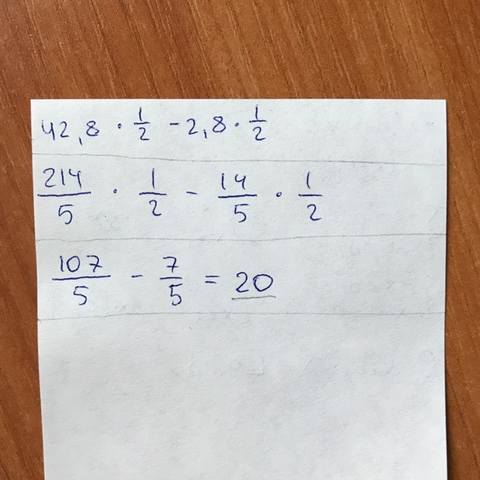 42,8 · 1/2 - 2,8 · 1/2
214/5 · 1/2 - 14/5 · 1/2
107/5 - 7/5 = 20